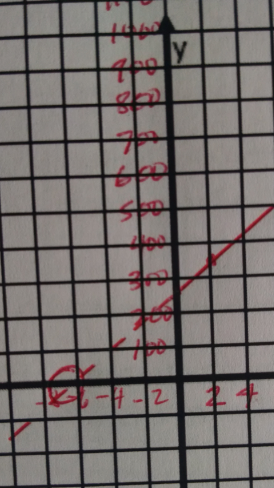 1000
y
900
800
700
600
500
400
300
200
100
-6 -4 -2 2 4